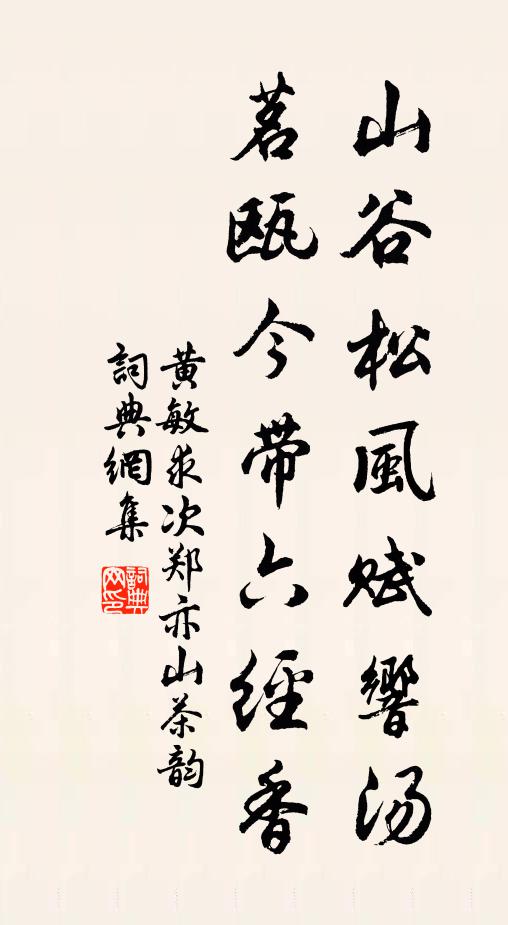 山谷松風赋響汤
茗瓯今带六經香
黄敏求次郑亦山茶韵
詞典網集
詞典网印